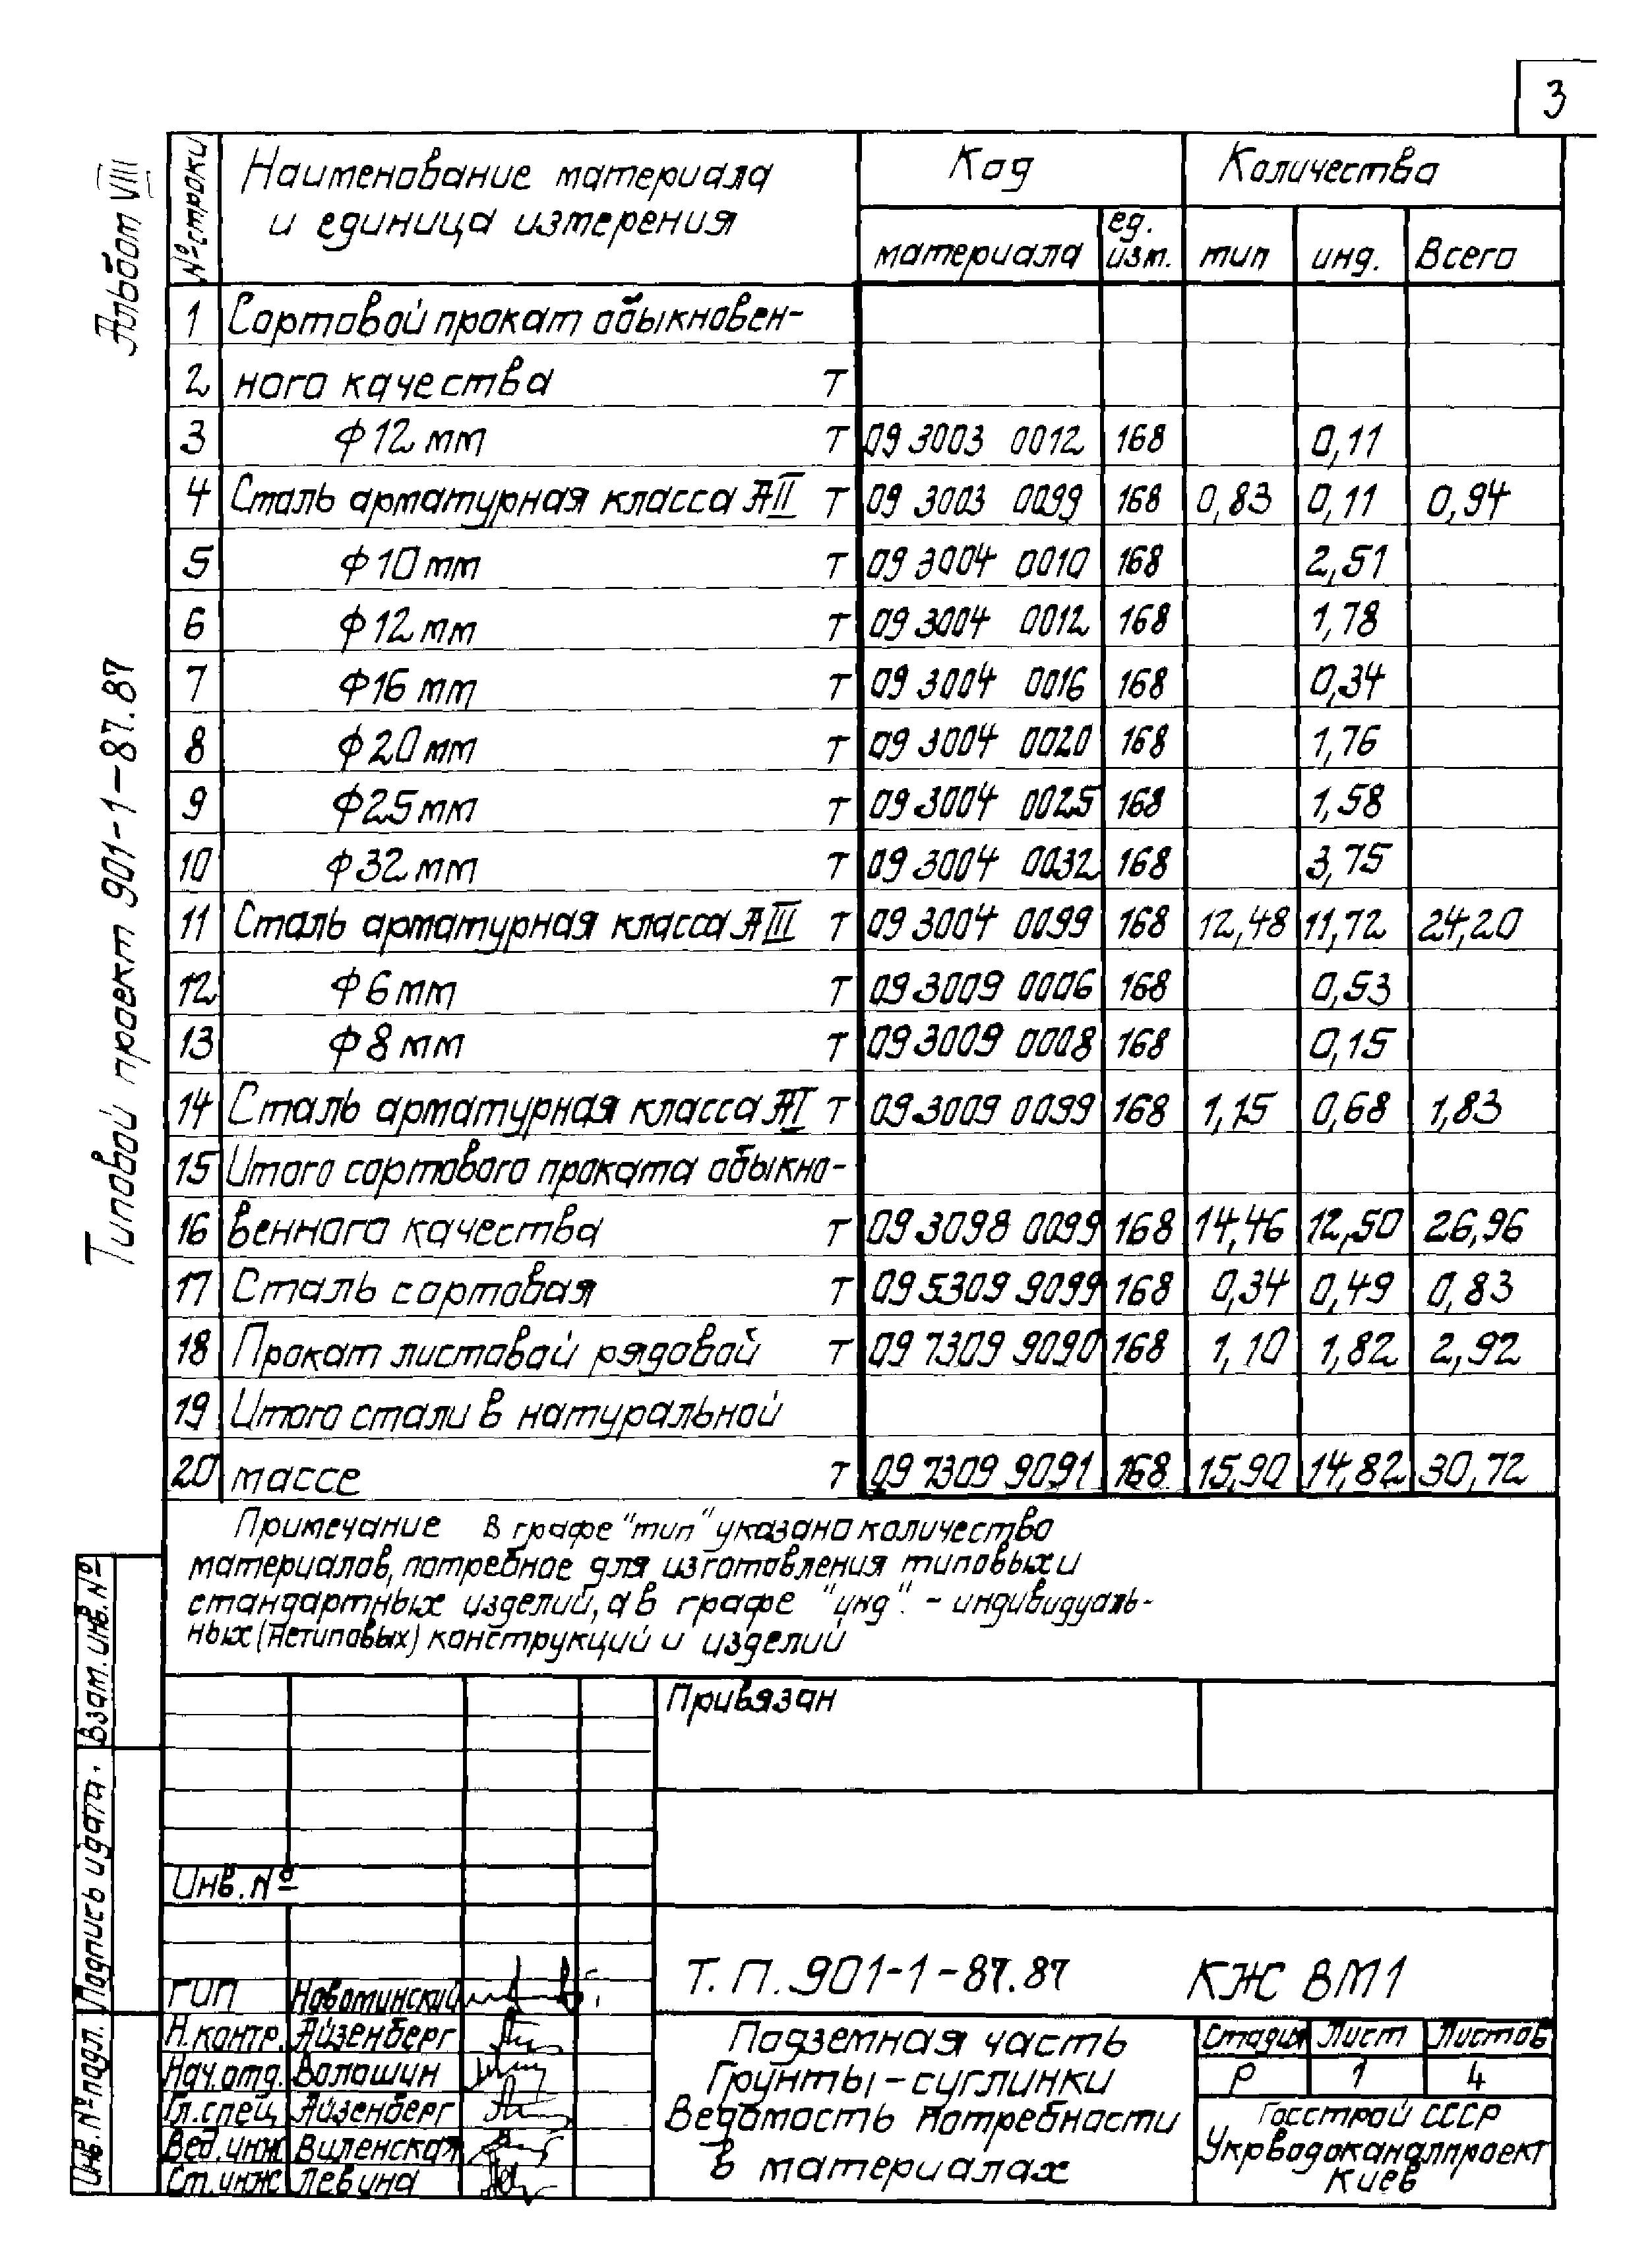 3
Альбом VIII
Типовой проект 901-1-87.87
№ строки Наименование материала и единица измерения Код Количества
материала ед. изм. тип инд. Всего
1 Сортовой прокат обыкновен-
2 ного качества т
3 ф12 мм т 09 3003 0012 168 0,11
4 Сталь арматурная класса АII т 09 3003 0099 168 0,83 0,11 0,94
5 ф10 мм т 09 3004 0010 168 2,51
6 ф12 мм т 09 3004 0012 168 1,78
7 ф16 мм т 09 3004 0016 168 0,34
8 ф20 мм т 09 3004 0020 168 1,76
9 ф25 мм т 09 3004 0025 168 1,58
10 ф32 мм т 09 3004 0032 168 3,75
11 Сталь арматурная класса АIII т 09 3004 0099 168 12,48 11,72 24,20
12 ф6 мм т 09 3009 0006 168 0,53
13 ф8 мм т 09 3009 0008 168 0,15
14 Сталь арматурная класса АI т 09 3009 0099 168 1,15 0,68 1,83
15 Итого сортового проката обыкно-
16 венного качества т 09 3098 0099 168 14,46 12,50 26,96
17 Сталь сортовая т 09 5309 9099 168 0,34 0,49 0,83
18 Прокат листовой рядовой т 09 7309 9090 168 1,10 1,82 2,92
19 Итого стали в натуральной
20 массе т 09 7309 9091 168 15,90 14,82 30,72
Примечание В графе "тип" указано количество
материалов, потребное для изготовления типовых и
стандартных изделий, а в графе "инд". - индивидуаль-
ных (нетиповых) конструкций и изделий
Привязан
Инв. №
Взам. инв. №
Подпись и дата.
Инв. № подл.
Т. П. 901-1-87.87 КЖ ВМ1
ГИП Новоминский
Н. контр. Айзенберг
Нач. отд. Волошин
Гл. спец Айзенберг
Вед. инж Виленская
Ст. инж Левина
Подземная часть
Грунты - суглинки
Ведомость потребности
в материалах
Стадия Лист Листов
Р 1 4
Госстрой СССР
Укрводоканалпроект
Киев